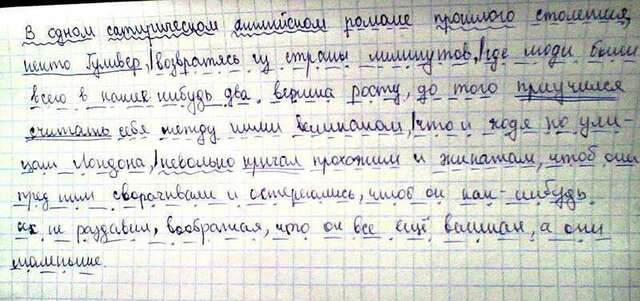 В одном сатирическом английском романе прошлого столетия,
некто Гулливер, возвратясь из страны лилипутов, где люди были
всего в какие-нибудь два вершка росту, до того приучился
считать себя между ними великаном, что и ходя по ули-
цам Лондона, невольно кричал прохожим и экипажам, чтоб они
пред ним сворачивали и остерегались, чтоб он как-нибудь
их не раздавил, воображая, что он все ещё великан, а они
маленькие.